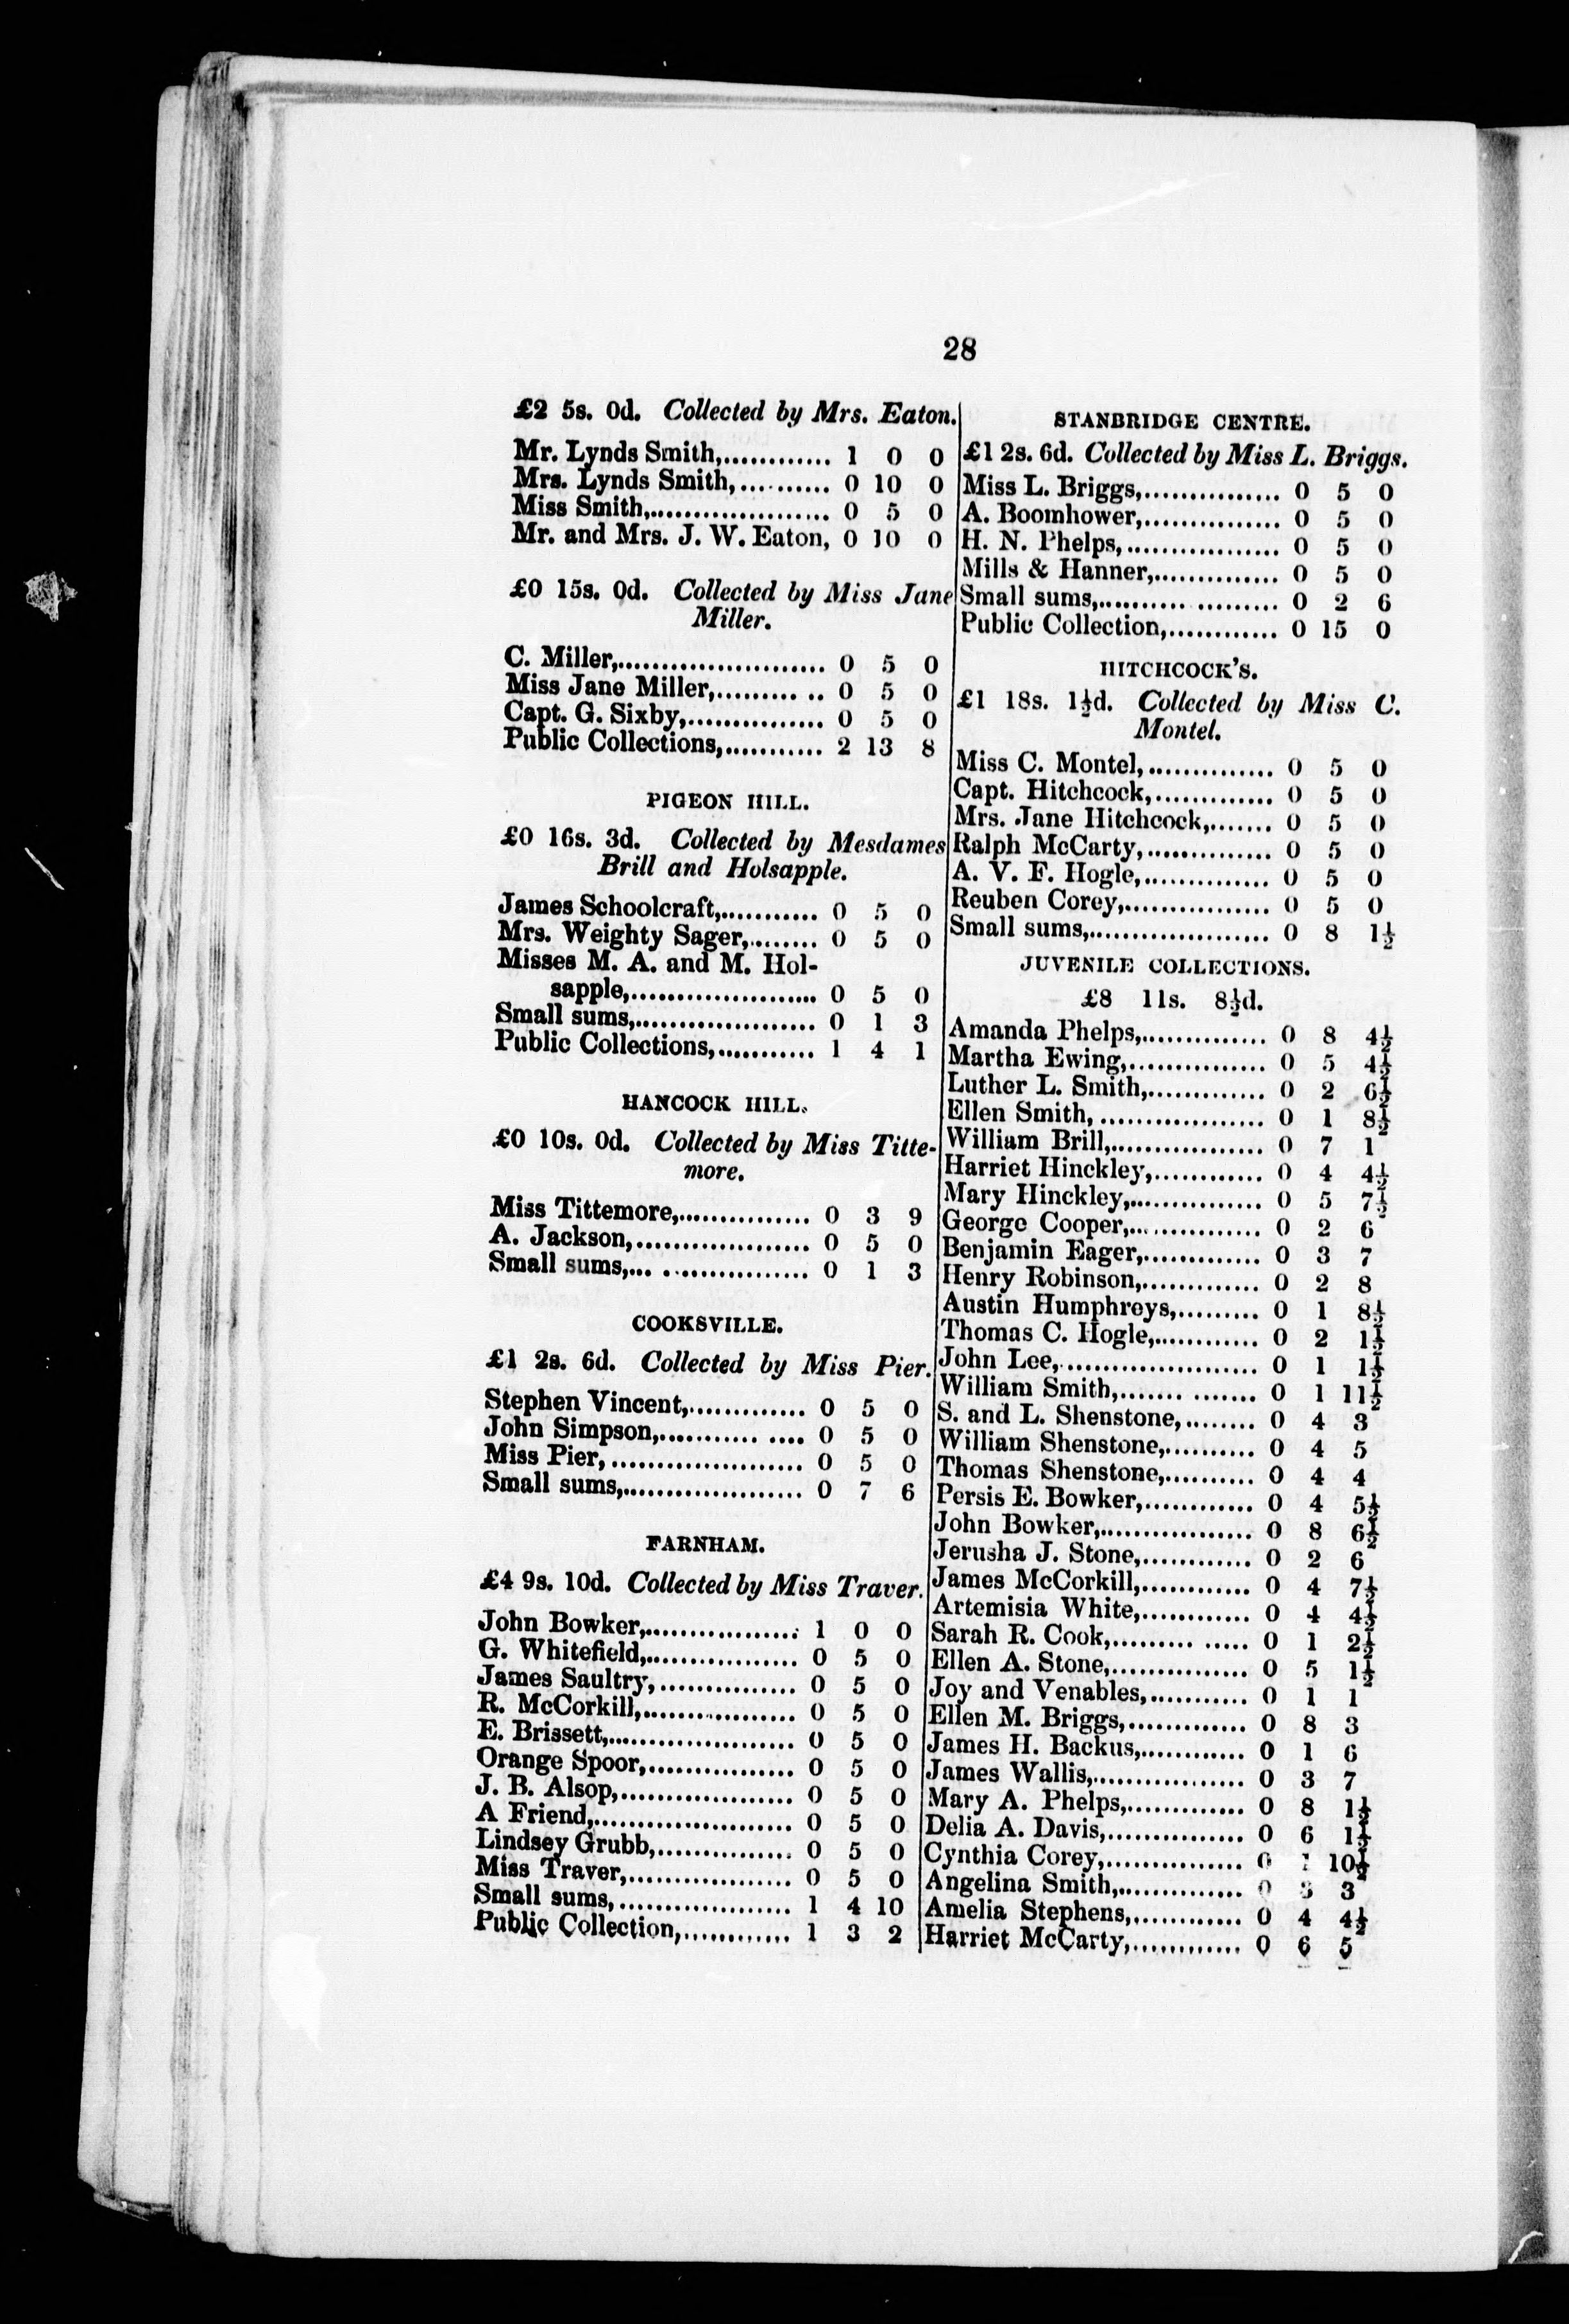 28
£2 5s. 0d. Collected by Mrs. Eaton.
Mr. Lynds Smith,............ 1 0 0
Mrs. Lynds Smith,.......... 0 10 0
Miss Smith,.................... 0 5 0
Mr. and Mrs. J. W. Eaton, 0 10 0
£0 15s. 0d. Collected by Miss Jane
Miller.
C. Miller,....................... 0 5 0
Miss Jane Miller,.......... .. 0 5 0
Capt. G. Sixby,............... 0 5 0
Public Collections,........... 2 13 8
PIGEON HILL.
£0 16s. 3d. Collected by Mesdames
Brill and Holsapple.
James Schoolcraft,........... 0 5 0
Mrs. Weighty Sager,........ 0 5 0
Misses M. A. and M. Hol-
sapple,..................... 0 5 0
Small sums,.................... 0 1 3
Public Collections,........... 1 4 1
HANCOCK HILL.
£0 10s. 0d. Collected by Miss Titte-
more.
Miss Tittemore,............... 0 3 9
A. Jackson,.................... 0 5 0
Small sums,... ................ 0 1 3
COOKSVILLE.
£1 2s. 6d. Collected by Miss Pier.
Stephen Vincent,............. 0 5 0
John Simpson,........... .... 0 5 0
Miss Pier,...................... 0 5 0
Small sums,.................... 0 7 6
FARNHAM.
£4 9s. 10d. Collected by Miss Traver.
John Bowker,................. 1 0 0
G. Whitefield,................. 0 5 0
James Saultry,............... 0 5 0
R. McCorkill,................. 0 5 0
E. Brissett,..................... 0 5 0
Orange Spoor,................ 0 5 0
J. B. Alsop,.................... 0 5 0
A Friend,...................... 0 5 0
Lindsey Grubb,............... 0 5 0
Miss Traver,................... 0 5 0
Small sums,.................... 1 4 10
Public Collection,............ 1 3 2
STANBRIDGE CENTRE.
£1 2s. 6d. Collected by Miss L. Briggs.
Miss L. Briggs,............... 0 5 0
A. Boomhower,............... 0 5 0
H. N. Phelps,................. 0 5 0
Mills & Hanner,.............. 0 5 0
Small sums,.......... ......... 0 2 6
Public Collection,............ 0 15 0
HITCHCOCK'S.
£1 18s. 1½d. Collected by Miss C.
Montel.
Miss C. Montel,.............. 0 5 0
Capt. Hitchcock,............. 0 5 0
Mrs. Jane Hitchcock,....... 0 5 0
Ralph McCarty,.............. 0 5 0
A. V. F. Hogle,.............. 0 5 0
Reuben Corey,................ 0 5 0
Small sums,.................... 0 8 1½
JUVENILE COLLECTIONS.
£8 11s. 8½d.
Amanda Phelps,.............. 0 8 4½
Martha Ewing,............... 0 5 4½
Luther L. Smith,............. 0 2 6½
Ellen Smith,.................. 0 1 8½
William Brill,................. 0 7 1
Harriet Hinckley,............ 0 4 4½
Mary Hinckley,............... 0 5 7½
George Cooper,............... 0 2 6
Benjamin Eager,............. 0 3 7
Henry Robinson,............. 0 2 8
Austin Humphreys,......... 0 1 8½
Thomas C. Hogle,........... 0 2 1½
John Lee,...................... 0 1 1½
William Smith,....... ....... 0 1 11½
S. and L. Shenstone,........ 0 4 3
William Shenstone,.......... 0 4 5
Thomas Shenstone,.......... 0 4 4
Persis E. Bowker,............ 0 4 5½
John Bowker,................. 0 8 6½
Jerusha J. Stone,............ 0 2 6
James McCorkill,............ 0 4 7½
Artemisia White,............ 0 4 4½
Sarah R. Cook,......... ..... 0 1 2½
Ellen A. Stone,............... 0 5 1½
Joy and Venables,........... 0 1 1
Ellen M. Briggs,............. 0 8 3
James H. Backus,............ 0 1 6
James Wallis,................. 0 3 7
Mary A. Phelps,............. 0 8 1½
Delia A. Davis,............... 0 6 1½
Cynthia Corey,............... 10½
Angelina Smith,.............. 0 3 3
Amelia Stephens,............ 0 4 4½
Harriet McCarty,............ 0 6 5